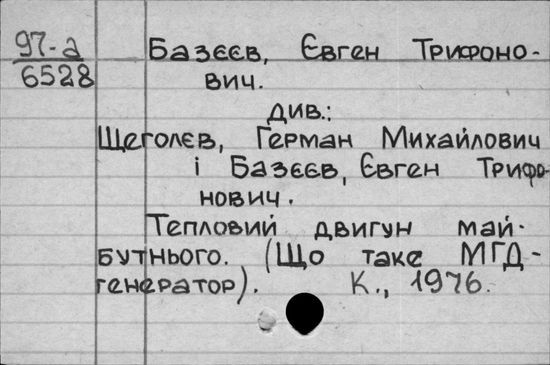 97-а
6528
Базєєв, Євген Трифоно-
вич.
див.:
Щеголєв, Герман Михайлович
і Базєєв, Євген Трифо-
нович.
Тепловий двигун май-
бутнього. (Що таке МГД-
генератор). К., 1976.